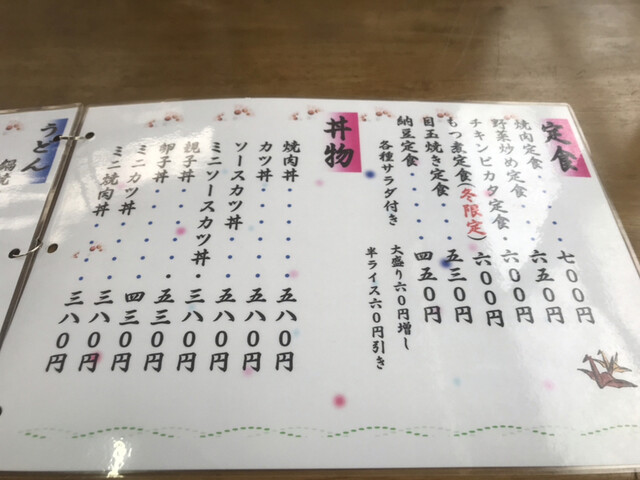 定食
焼肉定食・・・・七〇〇円
野菜炒め定食・・六五〇円
チキンピカタ定食・六〇〇円
もつ煮定食(冬限定)六〇〇円
目玉焼き定食・・五三〇円
納豆定食・・・四五〇円
各種サラダ付き 大盛り六〇円増し
半ライス六〇円引き
丼物
焼肉丼・・・・・五八〇円
カツ丼・・・・・五八〇円
ソースカツ丼・・・五八〇円
ミニソースカツ丼 三八〇円
親子丼・・・・・五三〇円
卵子丼・・・・・四三〇円
ミニカツ丼・・・三八〇円
ミニ焼肉丼・・・三八〇円
うどん